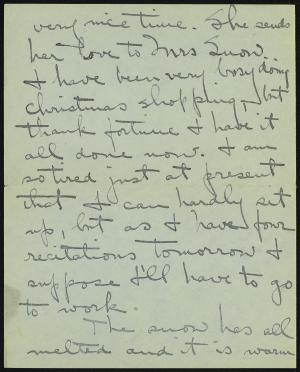 very nice time. She sends
her love to Mrs Snow.
I have been very busy doing
christmas shopping, but
thank fortune I have it
all done now. I am
so tired just at present
that I can hardly sit
up, but as I have four
recitations tomorrow I
suppose I'll have to go
to work.
The snow has all
melted and it is warm